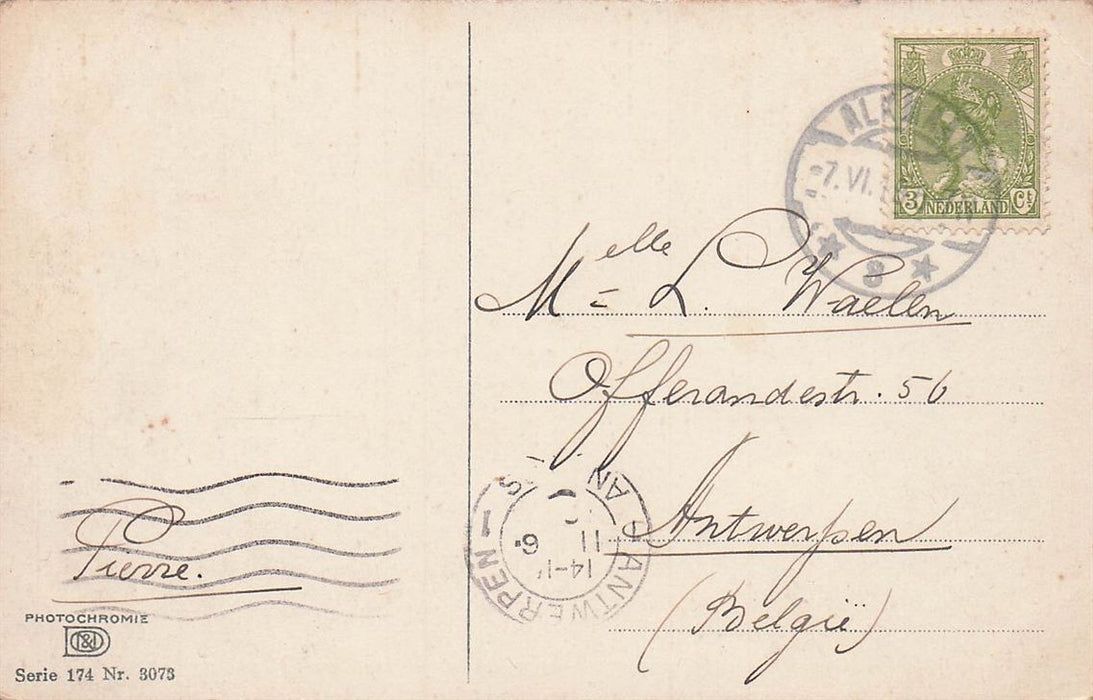 3 NEDERLAND Ct
7. VI.
8
Melle L. Waelen
Offerandestr. 56
Antwerpen
(België)
ANTWERPEN
11
14-1
Pierre.
PHOTOCHROMIE
D&N
Serie 174 Nr. 3073